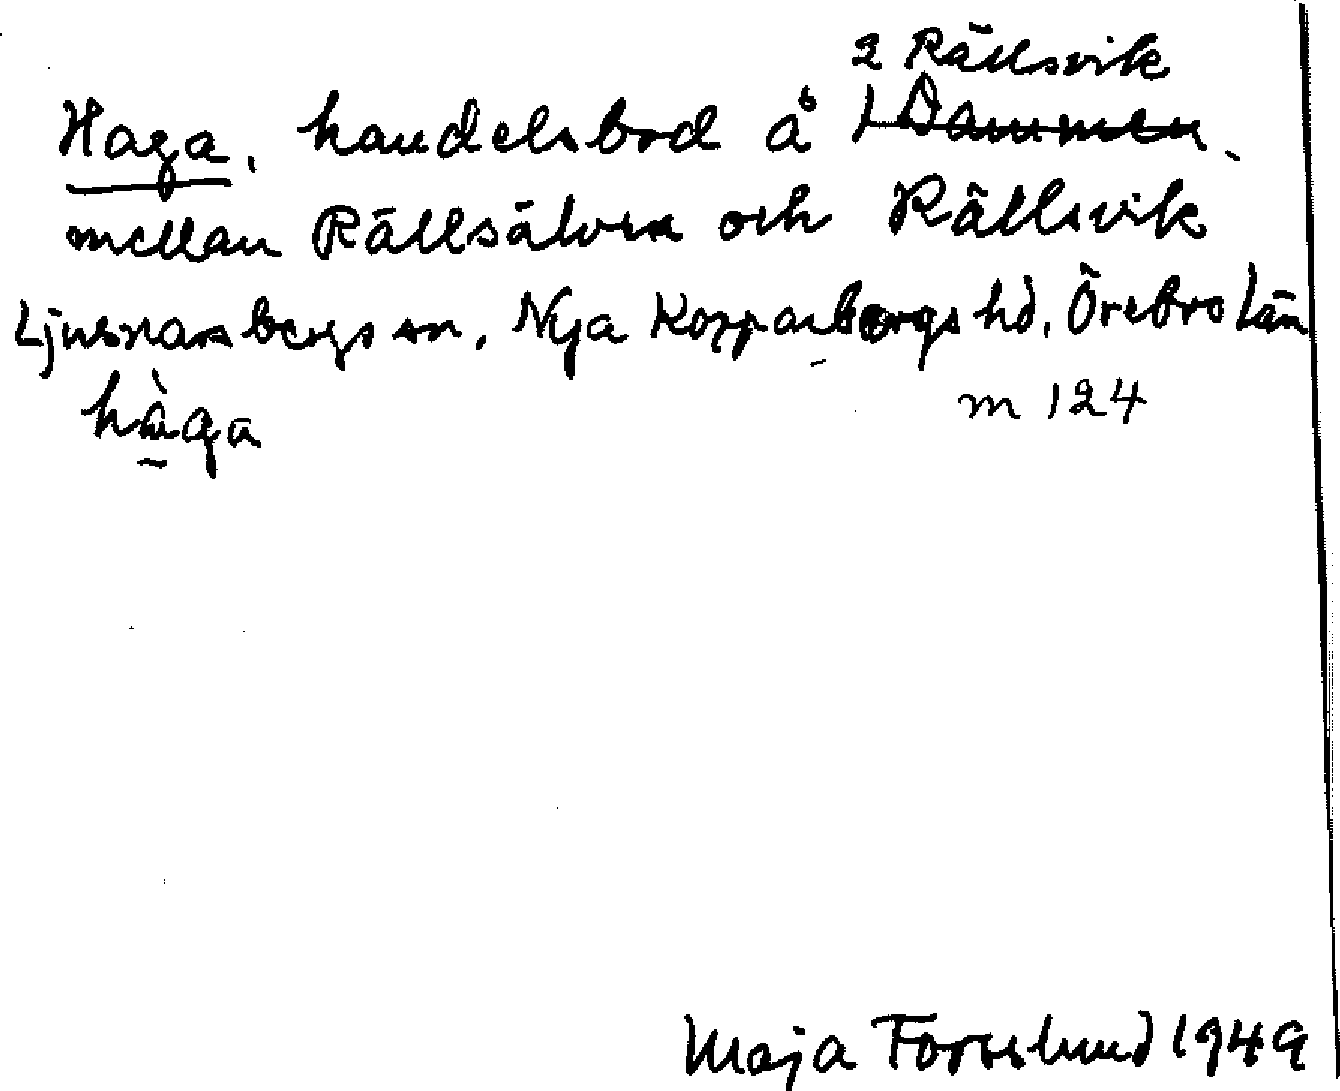 2 Rällsvik
Haga, handelsbod å 1 Dammen
mellan Rällsälven och Rällsvik
Ljusnarsbergs sn, Nya Kopparbergs hd, Örebro län
hàga
m 124
Maja Forsslund 1949